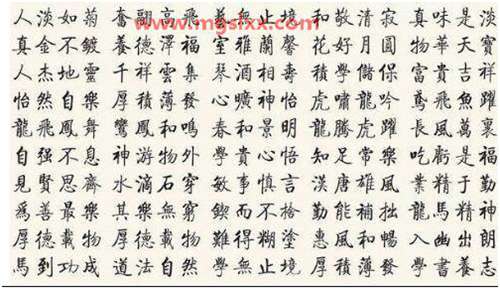 www.mgslxx.com
人淡如菊 奮翮高飛 無止境 和敬清寂 真味是淡
真金不鍍 養德澤福 室雅蘭馨 花好月圓 物華天寶
人杰地靈 千祥雲集 琴酒相壽 積學儲保 富貴吉祥
怡然自樂 厚積薄發 心曠神怡 虎嘯龍吟 鳶飛魚躍
龍飛鳳舞 鸞鳳和鳴 春和景明 龍騰虎躍 長風萬裏
自强不息 神游物外 學貴心悟 知足常樂 吃虧是福
見賢思齊 水滴石穿 敏事慎言 漢唐雄風 業精于勤
爲善最樂 其樂無窮 鍥而不捨 勤能補拙 龍馬精神
厚德載物 厚德載物 難得糊塗 惠風和暢 入幽出朗
馬到功成 道法自然 學無止境 厚積薄發 學書養志